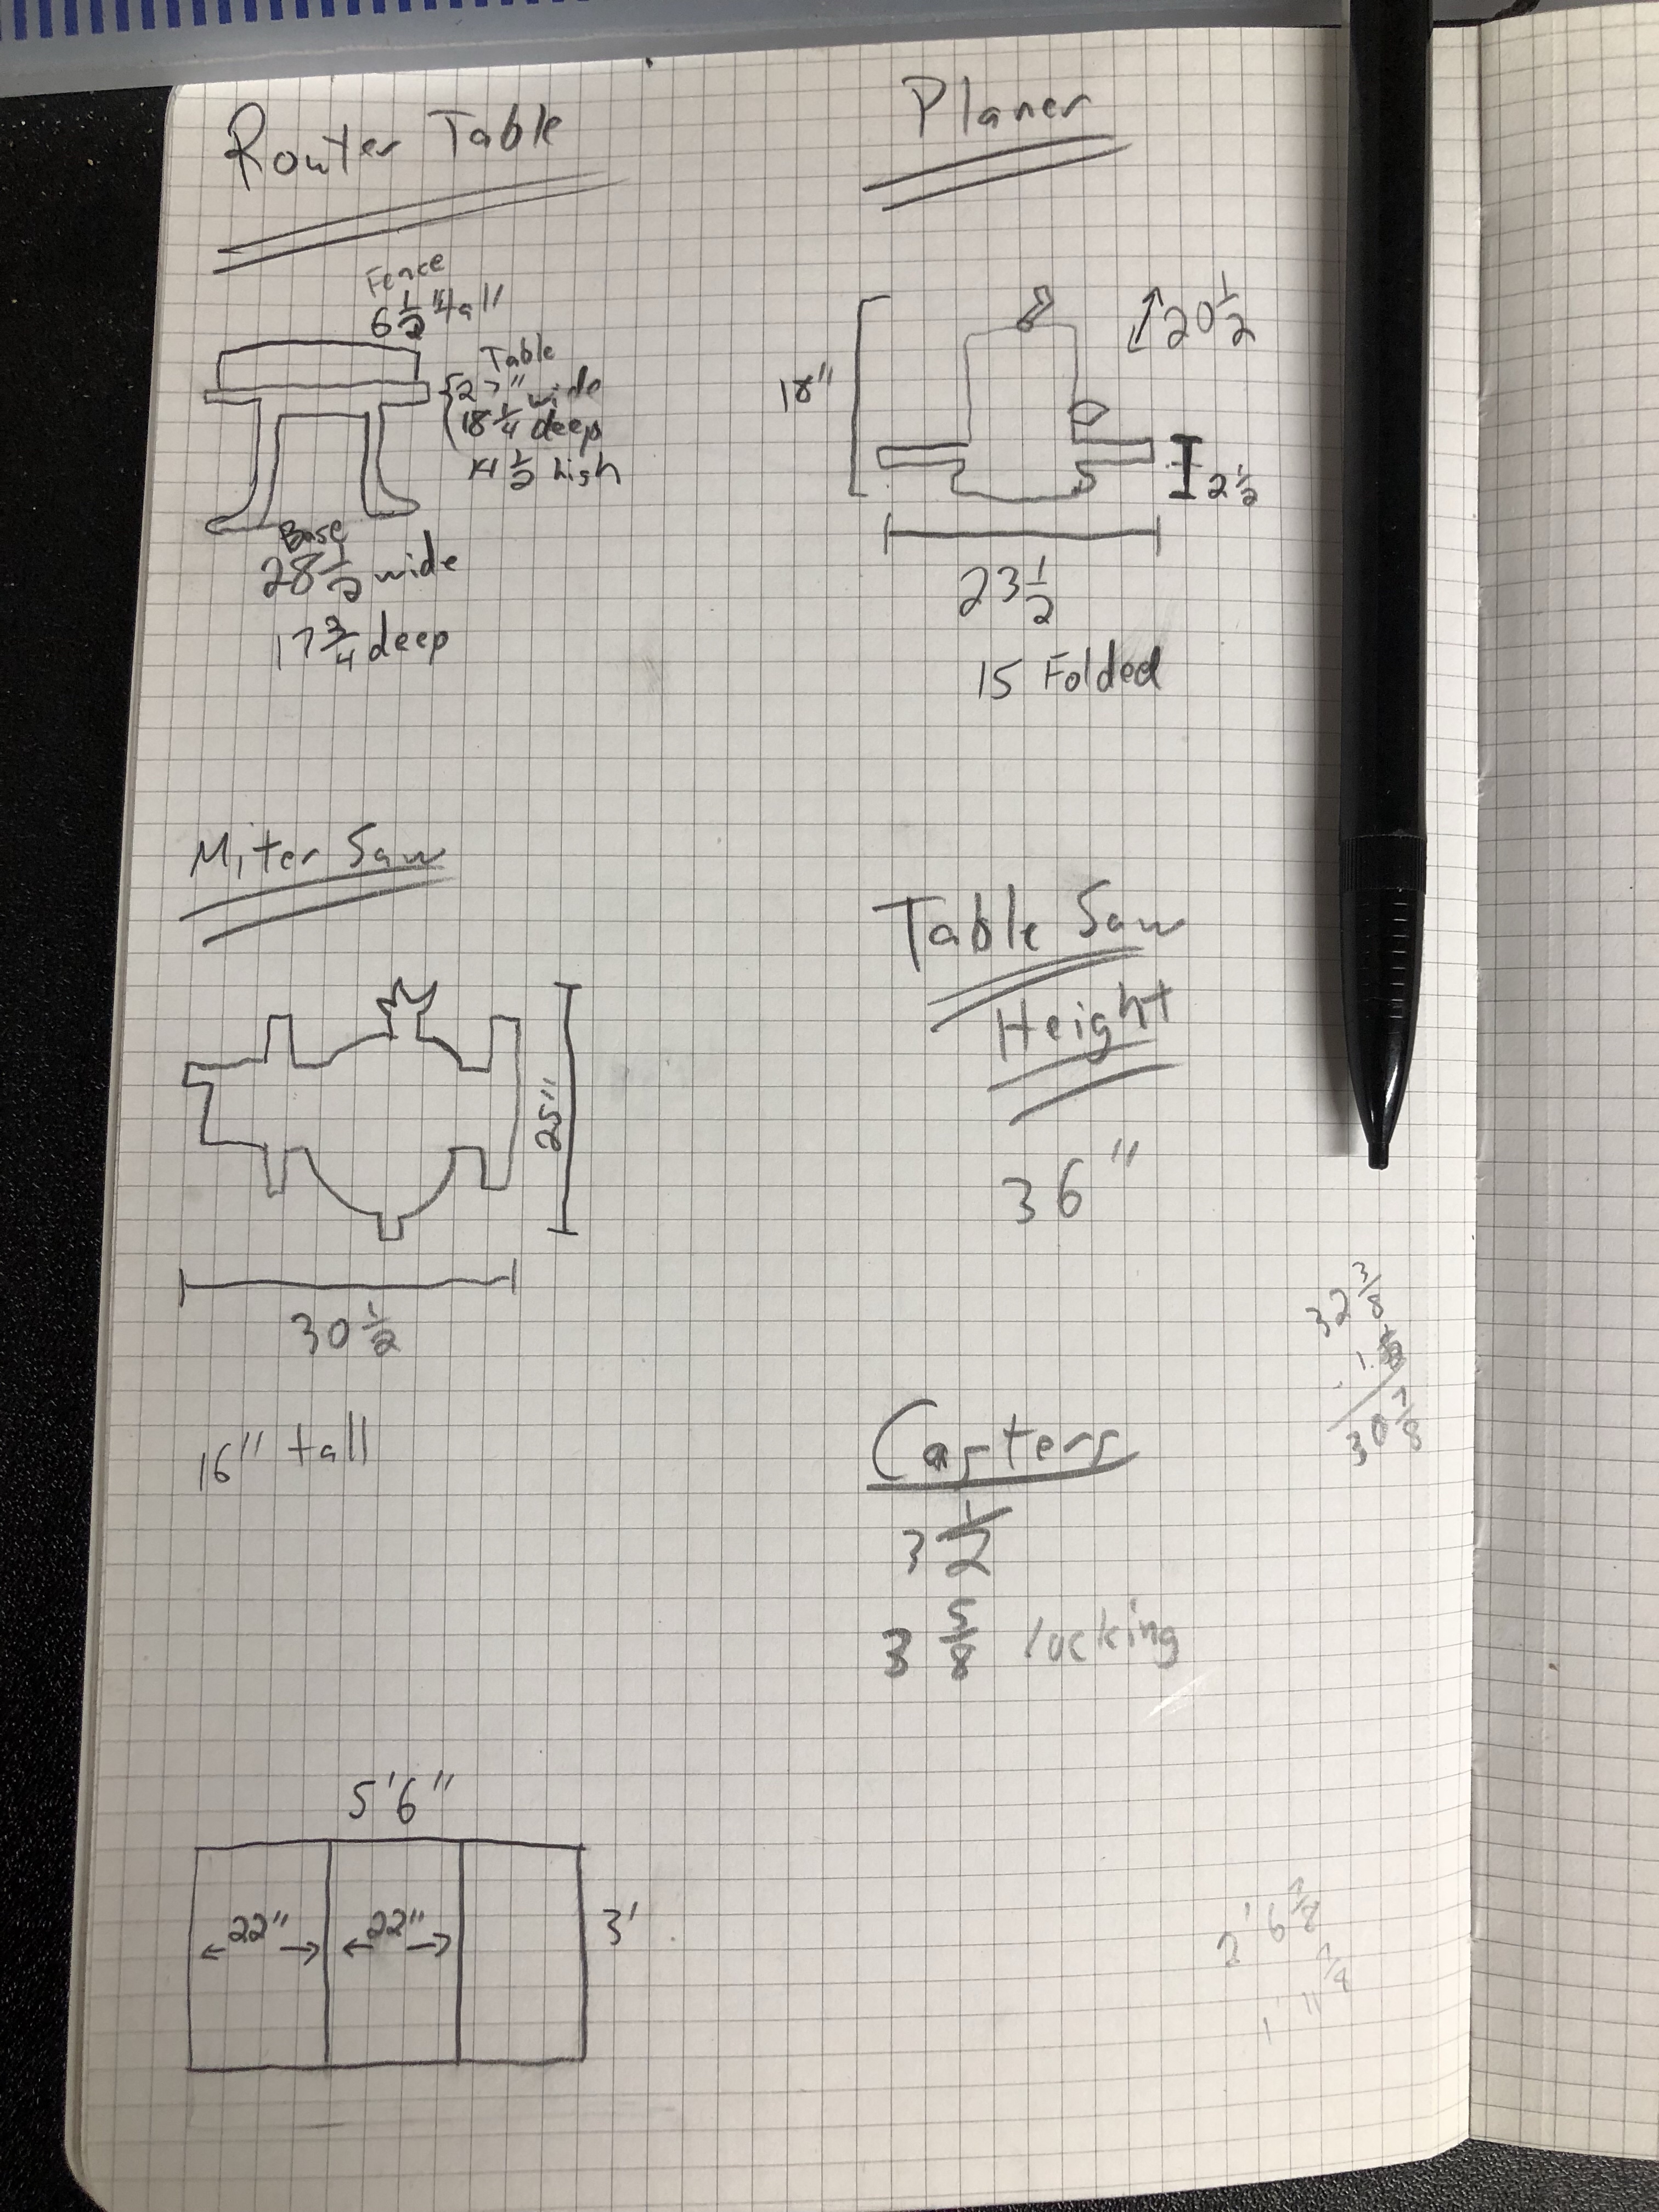 Router Table
Fence
6 1/2" tall
Table
27" wide
18 1/4 deep
1/2 high
Base
28 1/2 wide
17 3/4 deep
Planer
20 1/2
18"
2 1/2
23 1/2
15 Folded
Miter Saw
25"
30 1/2
16" tall
Table Saw
Height
36"
32 3/8
1
30 7/8
Casters
3 1/2
3 5/8 locking
5'6"
22" 22"
3'
2' 6 7/8
1' 11